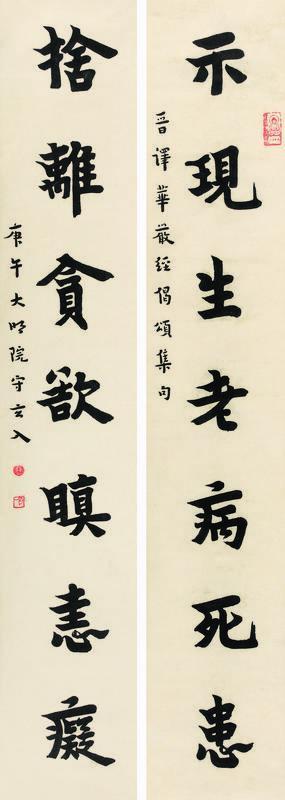 示現生老病死患
晉譯華嚴經偈頌集句
捨離貪慾瞋恚癡
庚午大明院守玄入